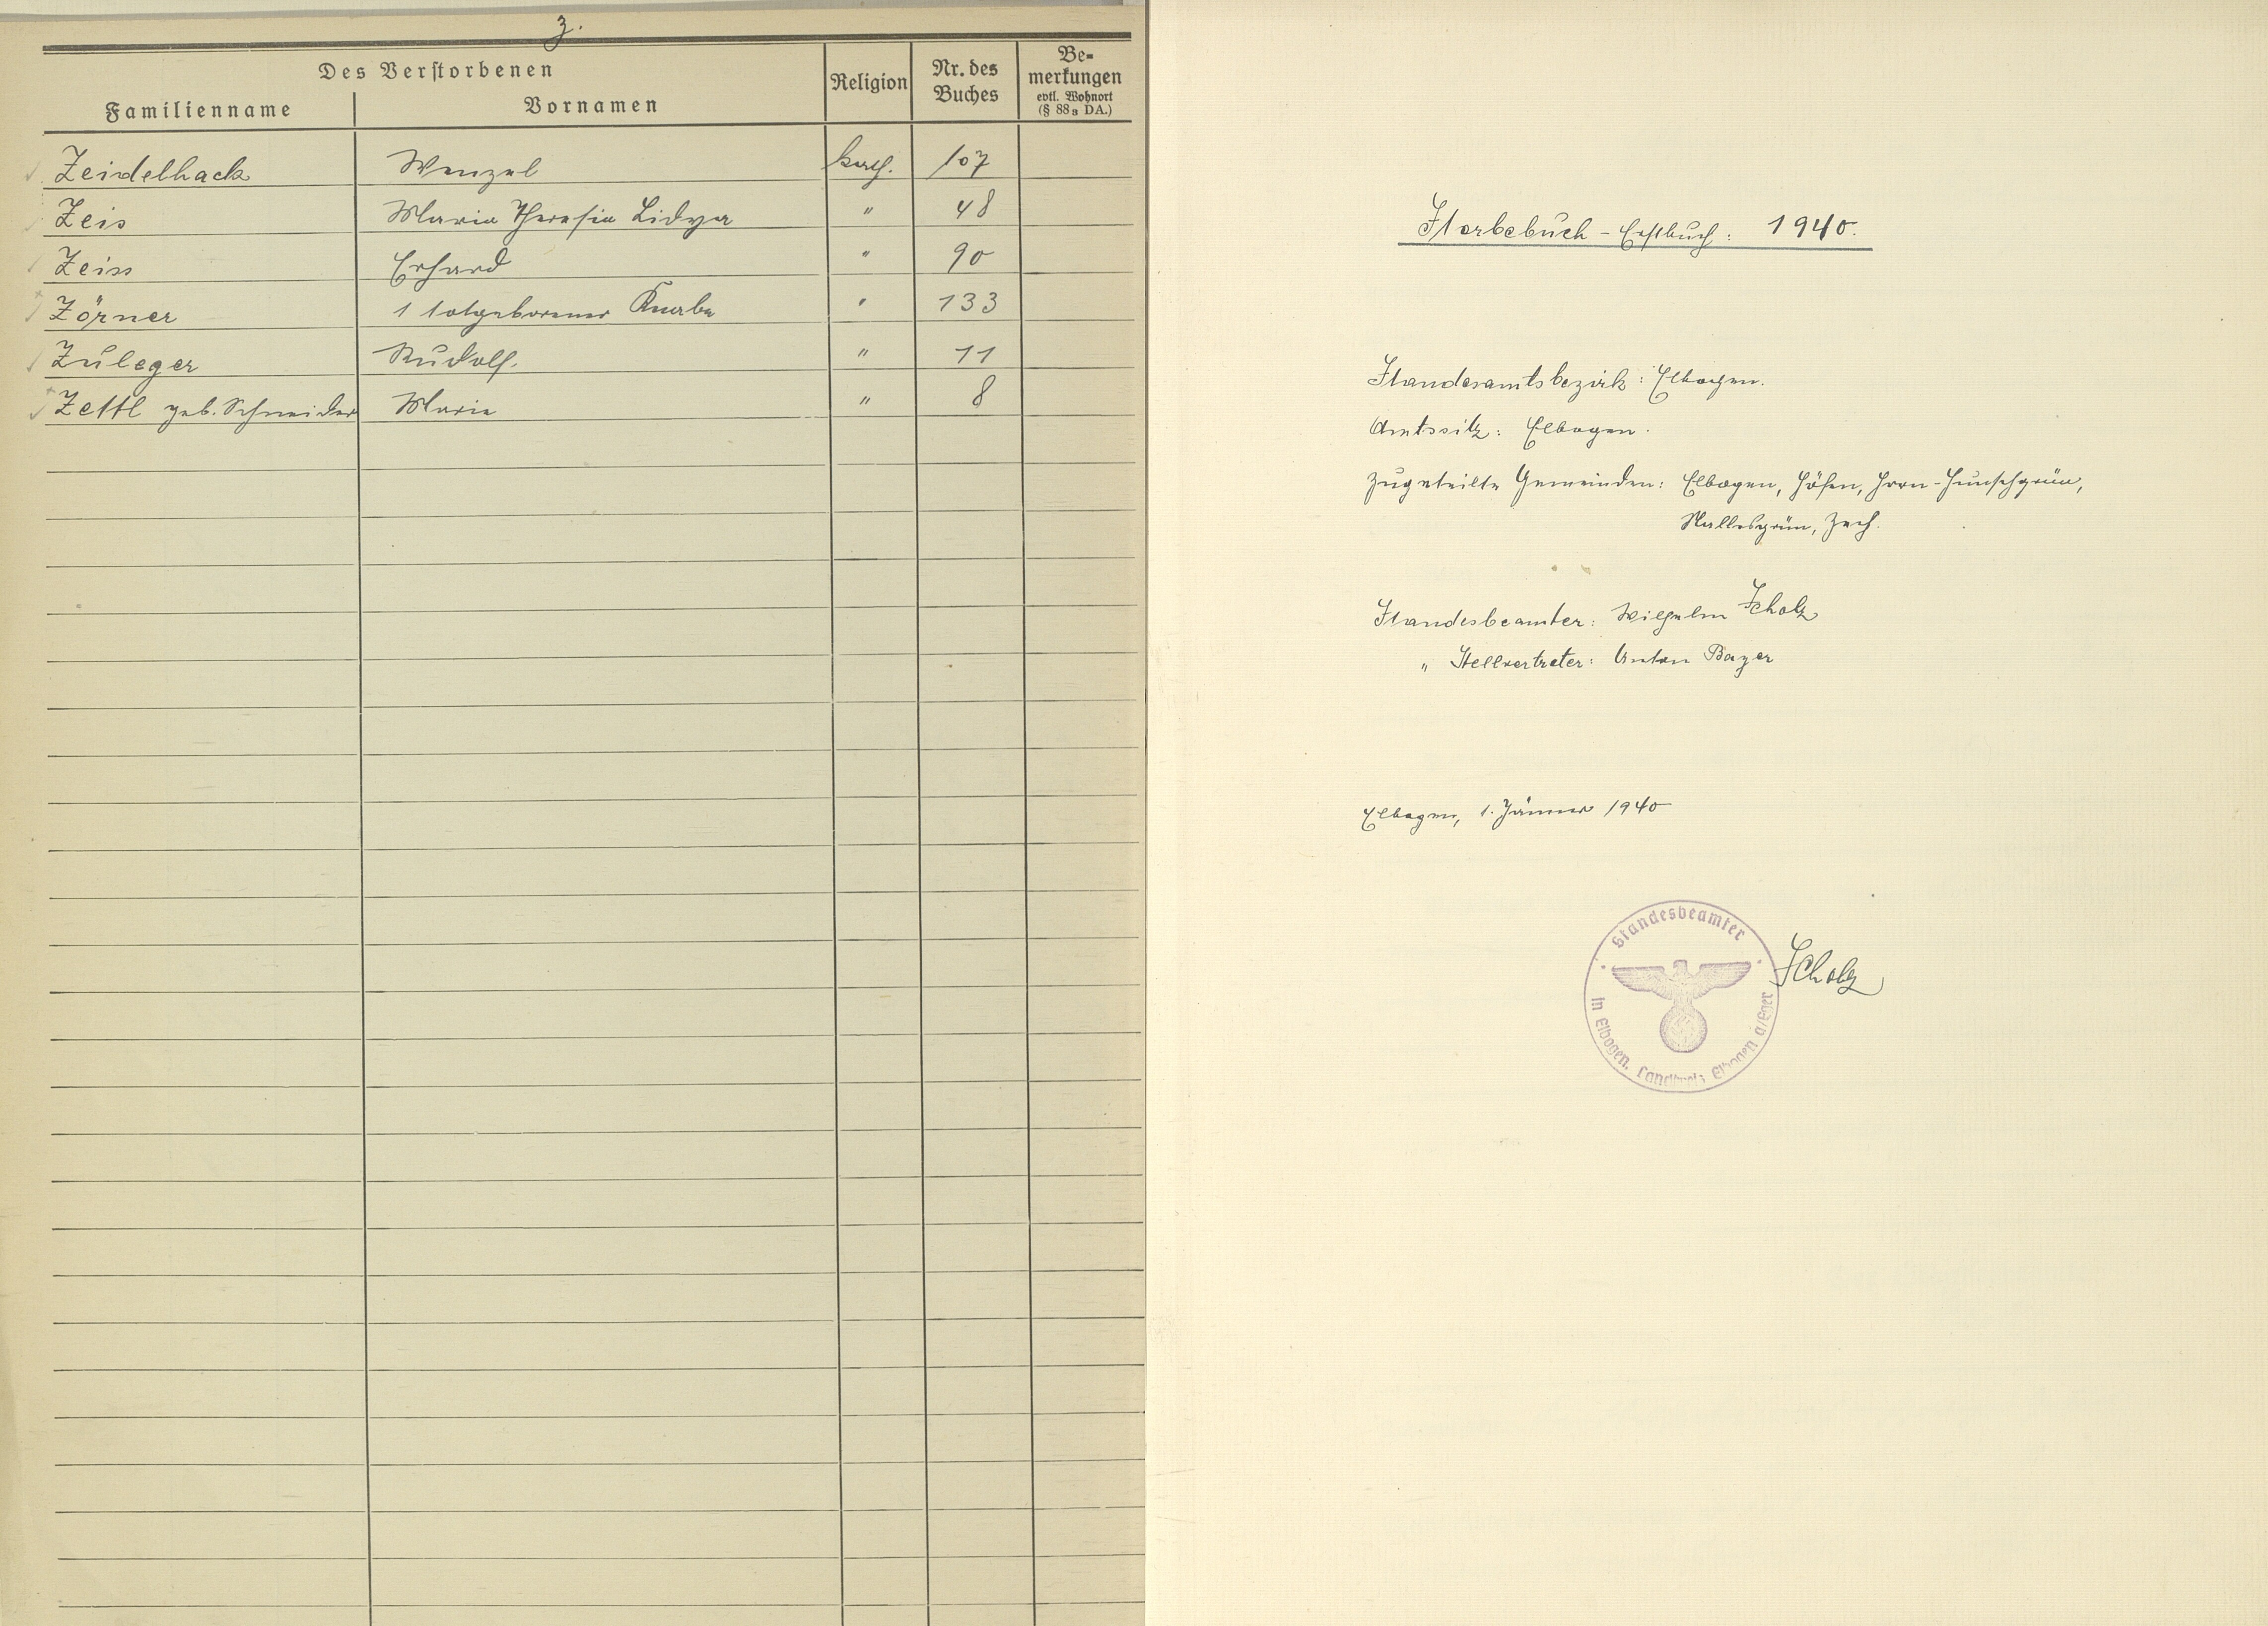 Z.
Des Verstorbenen
Familienname Vornamen Religion Nr. des Buches Bemerkungen evtl. Wohnort (§ 88 3 DA.)
Zeidelhack Wenzel kath. 107
Zeis Maria Theresia Lidya " 48
Zeiss Erhard " 90
Zörner 1 totgeborener Knabe " 133
Zuleger Rudolf. " 11
Zettl geb. Schneider Marie " 8
Sterbebuch - Erstbuch: 1940.
Standesamtsbezirk: Elbogen.
Amtssitz: Elbogen.
Zugeteilte Gemeinden: Elbogen, Höfen, Horn-Hunschgrün,
Nallesgrün, Zech.
Standesbeamter: Wilhelm Scholz
" Stellvertreter: Anton Bayer
Elbogen, 1. Jänner 1940
Standesbeamter
in Elbogen, Landkreis Elbogen a/Eger
Scholz